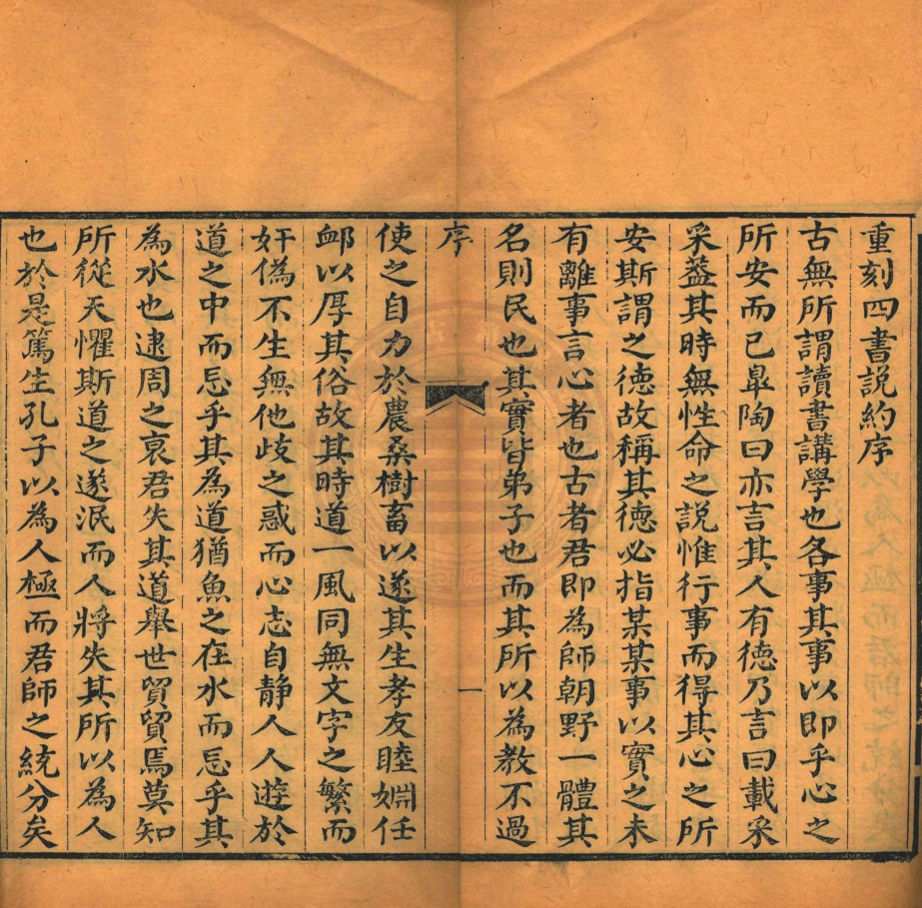 重刻四書説約序
古無所謂讀書講學也各事其事以即乎心之
所安而已臯陶曰亦言其人有徳乃言曰載采
采葢其時無性命之説惟行事而得其心之所
安斯謂之徳故稱其徳必指某某事以實之未
有離事言心者也古者君即為師朝野一體其
名則民也其實皆弟子也而其所以為教不過
序
一
使之自力於農桑樹畜以遂其生孝友睦婣任
䘏以厚其俗故其時道一風同無文字之繁而
奸偽不生無他歧之惑而心志自静人人遊於
道之中而忘乎其為道猶魚之在水而忘乎其
為水也逮周之衰君失其道舉世貿貿焉莫知
所從天懼斯道之遂泯而人將失其所以為人
也於是篤生孔子以為人極而君師之統分矣